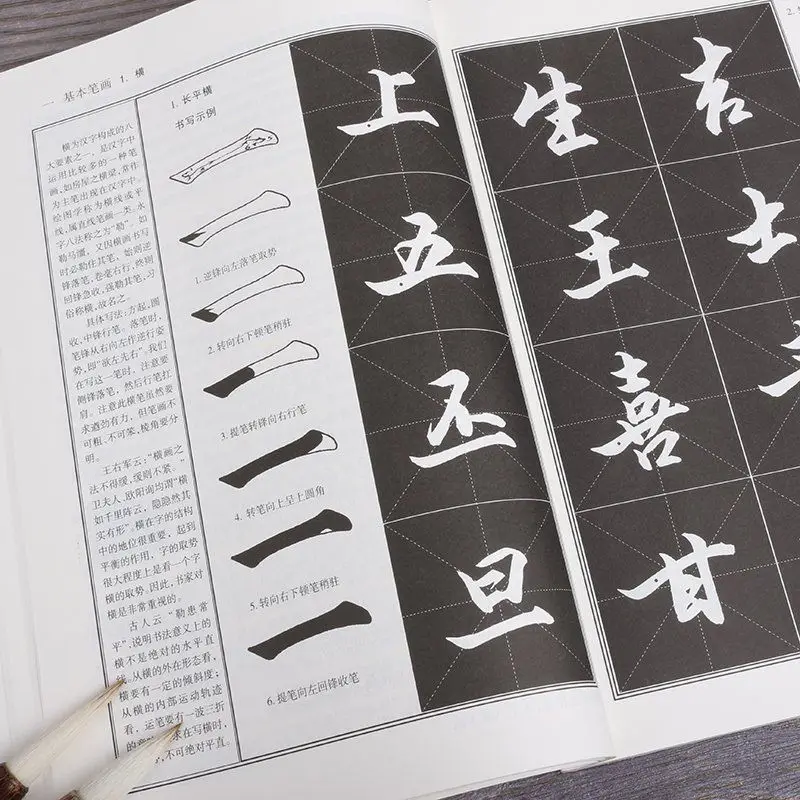 一 基本笔画 1. 横
横为汉字构成的八
大要素之一，是汉字中
运用比较多的一种笔
画，如房屋之横梁，常作
为主笔出现在汉字中。
绘图学称为横线或平
线，属直线笔画一类。永
字八法称之为“勒”，如
勒马缰，又因横画书写
时必勒住其笔，始则逆
锋落笔，卷毫右行，然则
回锋急收，强勒其笔，习
俗称横，故名之。
具体写法：方起，圆
收，中锋行笔。落笔时，
笔锋从右向左作逆行姿
势，即“欲左先右”。我们
在写这一笔时，注意要
侧锋落笔，然后行笔扛
肩。注意此横笔虽然要
求遒劲有力，但笔画不
可粗、不可笨，棱角要分
明。
王右军云：“横画之
法不得缓，缓则不紧。”
卫夫人、欧阳询均谓“横
如千里阵云，隐隐然其
实有形”。横在字的结构
中的地位很重要，起到
平衡的作用，字的取势
很大程度上是看一个字
横的取势。因此，书家对
横是非常重视的。
古人云“勒患常
平”，说明书法意义上的
横不是绝对的水平直
线。从横的外在形态看，
横要有一定的倾斜度；
从横的内部运动轨迹
看，运笔要有一波三折
求在写横时，
不可绝对平直。
1. 长平横
书写示例
1. 逆锋向左落笔取势
2. 转向右下顿笔稍驻
3. 提笔转锋向右行笔
4. 转笔向上呈上圆角
5. 转向右下顿笔稍驻
6. 提笔向左回锋收笔
上
五
丕
旦
生
王
喜
甘
吉
土
2.